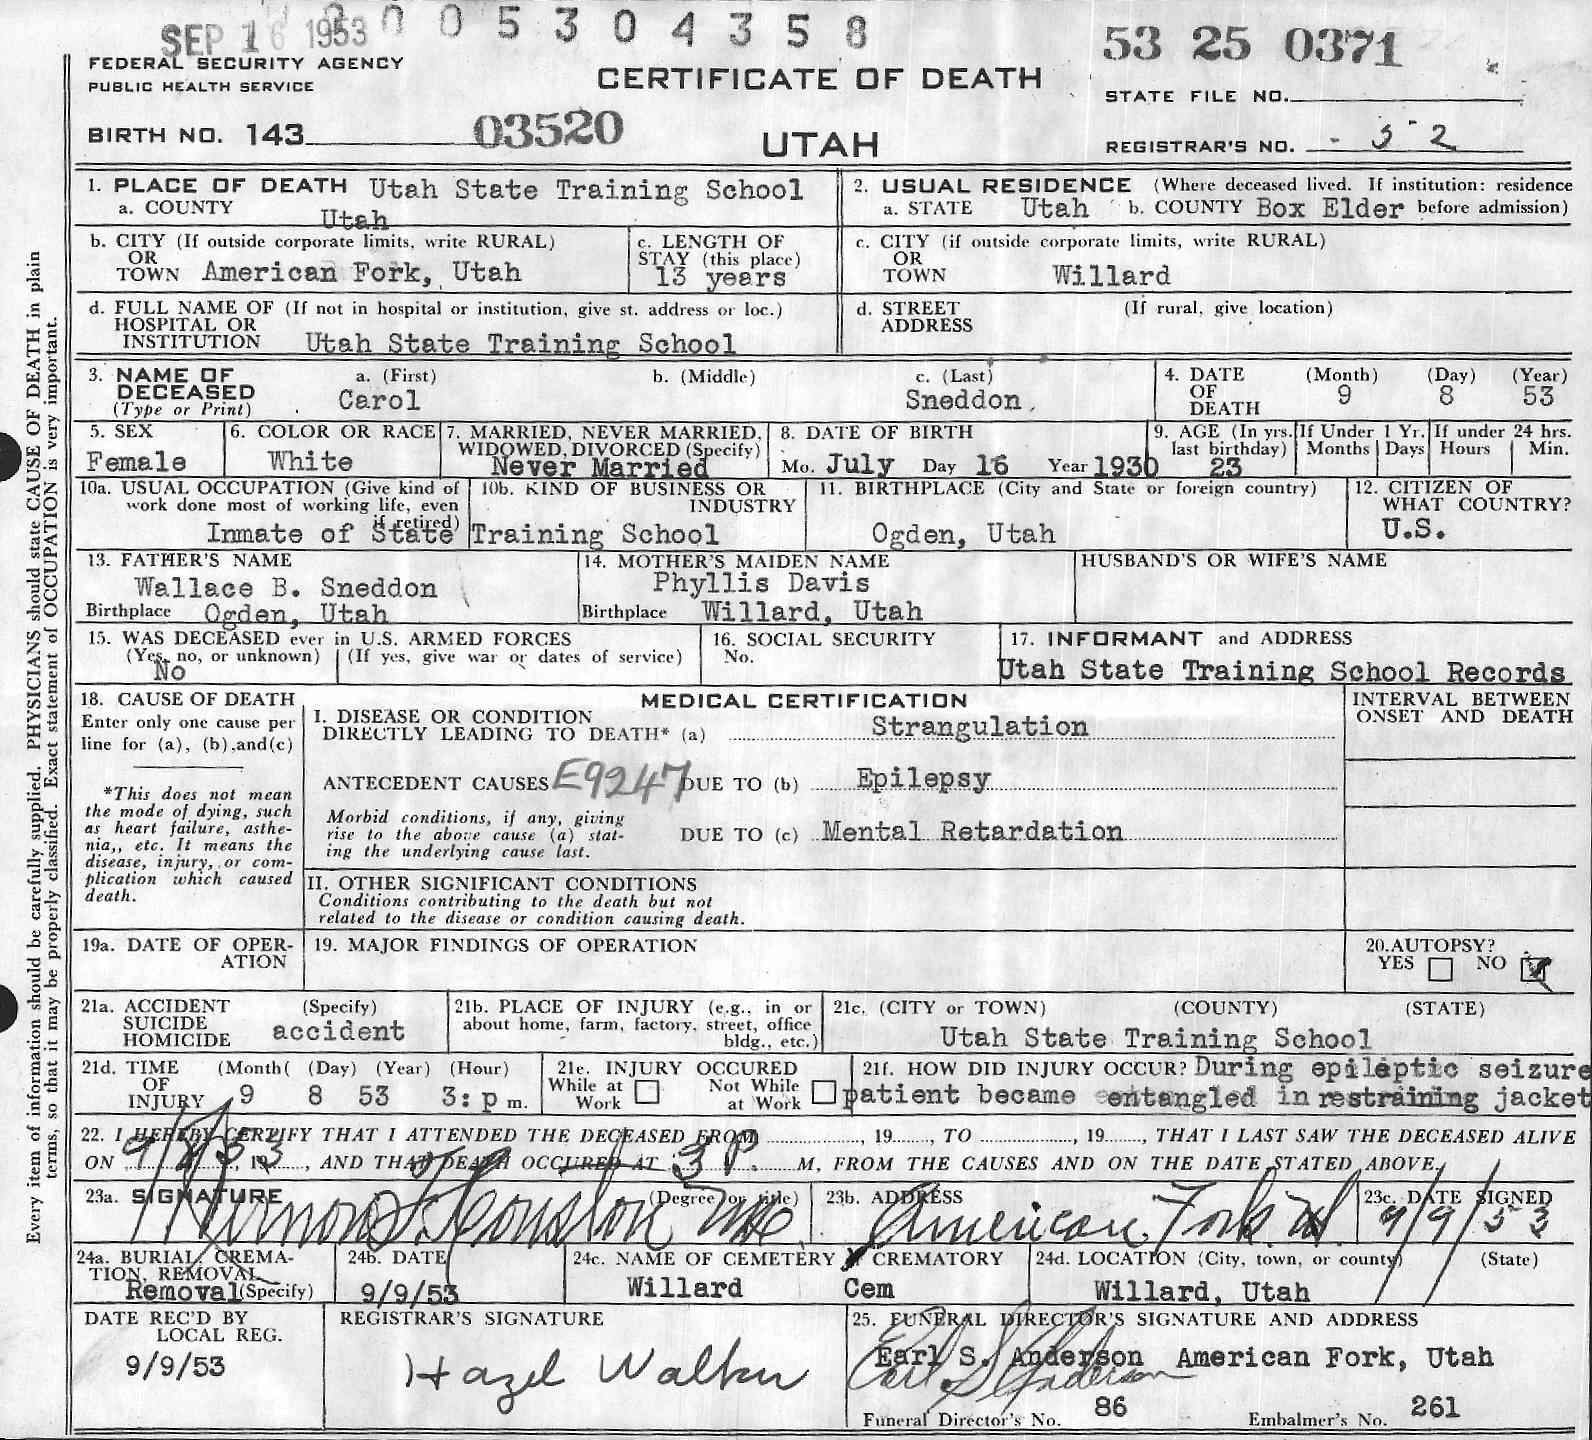 SEP 16 1953 0 0 5 3 0 4 3 5 8
53 25 0371
FEDERAL SECURITY AGENCY
PUBLIC HEALTH SERVICE
CERTIFICATE OF DEATH
STATE FILE NO.
BIRTH NO. 143 03520
UTAH
REGISTRAR'S NO. - 5 - 2
Every item of information should be carefully supplied. PHYSICIANS should state CAUSE OF DEATH in plain
terms, so that it may be properly classified. Exact statement of OCCUPATION is very important.
1. PLACE OF DEATH Utah State Training School
a. COUNTY Utah
2. USUAL RESIDENCE (Where deceased lived. If institution: residence
a. STATE Utah b. COUNTY Box Elder before admission)
b. CITY (If outside corporate limits, write RURAL)
OR
TOWN American Fork, Utah
c. LENGTH OF
STAY (this place)
13 years
c. CITY (if outside corporate limits, write RURAL)
OR
TOWN Willard
d. FULL NAME OF (If not in hospital or institution, give st. address or loc.)
HOSPITAL OR
INSTITUTION Utah State Training School
d. STREET (If rural, give location)
ADDRESS
3. NAME OF a. (First) b. (Middle) c. (Last)
DECEASED Carol Sneddon
(Type or Print)
4. DATE (Month) (Day) (Year)
OF 9 8 53
DEATH
5. SEX
Female
6. COLOR OR RACE
White
7. MARRIED, NEVER MARRIED,
WIDOWED, DIVORCED (Specify)
Never Married
8. DATE OF BIRTH
Mo. July Day 16 Year 1930
9. AGE (In yrs.
last birthday)
23
If Under 1 Yr.
Months Days
If under 24 hrs.
Hours Min.
10a. USUAL OCCUPATION (Give kind of
work done most of working life, even
if retired)
Inmate of State
10b. KIND OF BUSINESS OR
INDUSTRY
Training School
11. BIRTHPLACE (City and State or foreign country)
Ogden, Utah
12. CITIZEN OF
WHAT COUNTRY?
U.S.
13. FATHER'S NAME
Wallace B. Sneddon
Birthplace Ogden, Utah
14. MOTHER'S MAIDEN NAME
Phyllis Davis
Birthplace Willard, Utah
HUSBAND'S OR WIFE'S NAME
15. WAS DECEASED ever in U.S. ARMED FORCES
(Yes, no, or unknown) (If yes, give war or dates of service)
No
16. SOCIAL SECURITY
No.
17. INFORMANT and ADDRESS
Utah State Training School Records
18. CAUSE OF DEATH
Enter only one cause per
line for (a), (b), and (c)
*This does not mean
the mode of dying, such
as heart failure, asthe-
nia,, etc. It means the
disease, injury, or com-
plication which caused
death.
MEDICAL CERTIFICATION
I. DISEASE OR CONDITION
DIRECTLY LEADING TO DEATH* (a) Strangulation
ANTECEDENT CAUSES E9247 DUE TO (b) Epilepsy
Morbid conditions, if any, giving
rise to the above cause (a) stat-
ing the underlying cause last.
DUE TO (c) Mental Retardation
INTERVAL BETWEEN
ONSET AND DEATH
II. OTHER SIGNIFICANT CONDITIONS
Conditions contributing to the death but not
related to the disease or condition causing death.
19a. DATE OF OPER-
ATION
19. MAJOR FINDINGS OF OPERATION
20. AUTOPSY?
YES NO
21a. ACCIDENT (Specify)
SUICIDE
HOMICIDE accident
21b. PLACE OF INJURY (e.g., in or
about home, farm, factory, street, office
bldg., etc.)
21c. (CITY or TOWN) (COUNTY) (STATE)
Utah State Training School
21d. TIME (Month( (Day) (Year) (Hour)
OF
INJURY 9 8 53 3: p m.
21e. INJURY OCCURED
While at Work Not While at Work
21f. HOW DID INJURY OCCUR? During epileptic seizure
patient became entangled in restraining jacket
22. I HEREBY CERTIFY THAT I ATTENDED THE DECEASED FROM , 19 , TO , 19 , THAT I LAST SAW THE DECEASED ALIVE
ON 9/8/53, 19 , AND THAT DEATH OCCURED AT 3 P. M, FROM THE CAUSES AND ON THE DATE STATED ABOVE.
23a. SIGNATURE (Degree or title)
Vernon F. Houston MD
23b. ADDRESS
American Fork Ut
23c. DATE SIGNED
9/9/53
24a. BURIAL, CREMA-
TION, REMOVAL
Removal (Specify)
24b. DATE
9/9/53
24c. NAME OF CEMETERY CREMATORY
Willard Cem
24d. LOCATION (City, town, or county) (State)
Willard, Utah
DATE REC'D BY
LOCAL REG.
9/9/53
REGISTRAR'S SIGNATURE
Hazel Walker
25. FUNERAL DIRECTOR'S SIGNATURE AND ADDRESS
Earl S. Anderson American Fork, Utah
Earl S Anderson
Funeral Director's No. 86 Embalmer's No. 261